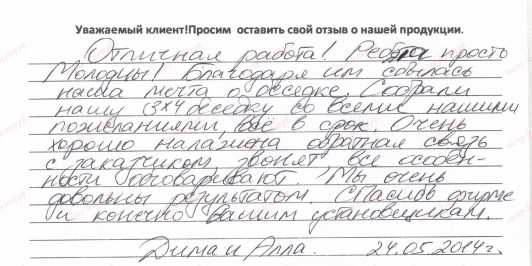 Уважаемый клиент!Просим оставить свой отзыв о нашей продукции.
Отличная работа! Ребята просто
Молодцы! Благодаря им сбылась
наша мечта о беседке. Собрали
нашу 3×4 беседку со всеми нашими
пожеланиями, всё в срок. Очень
хорошо налажена обратная связь
с заказчиком, звонят все особен-
ности обговаривают. Мы очень
довольны результатом. Спасибо фирме
и конечно вашим установщикам.
Дима и Алла. 24.05.2014г.